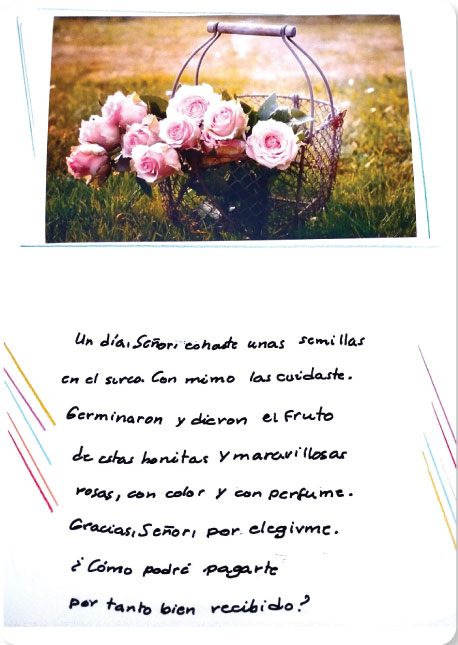 Un día, Señor, echaste unas semillas
en el surco. Con mimo las cuidaste.
Germinaron y dieron el Fruto
de estas bonitas y maravillosas
rosas, con color y con perfume.
Gracias, Señor, por elegirme.
¿Cómo podré pagarte
por tanto bien recibido?